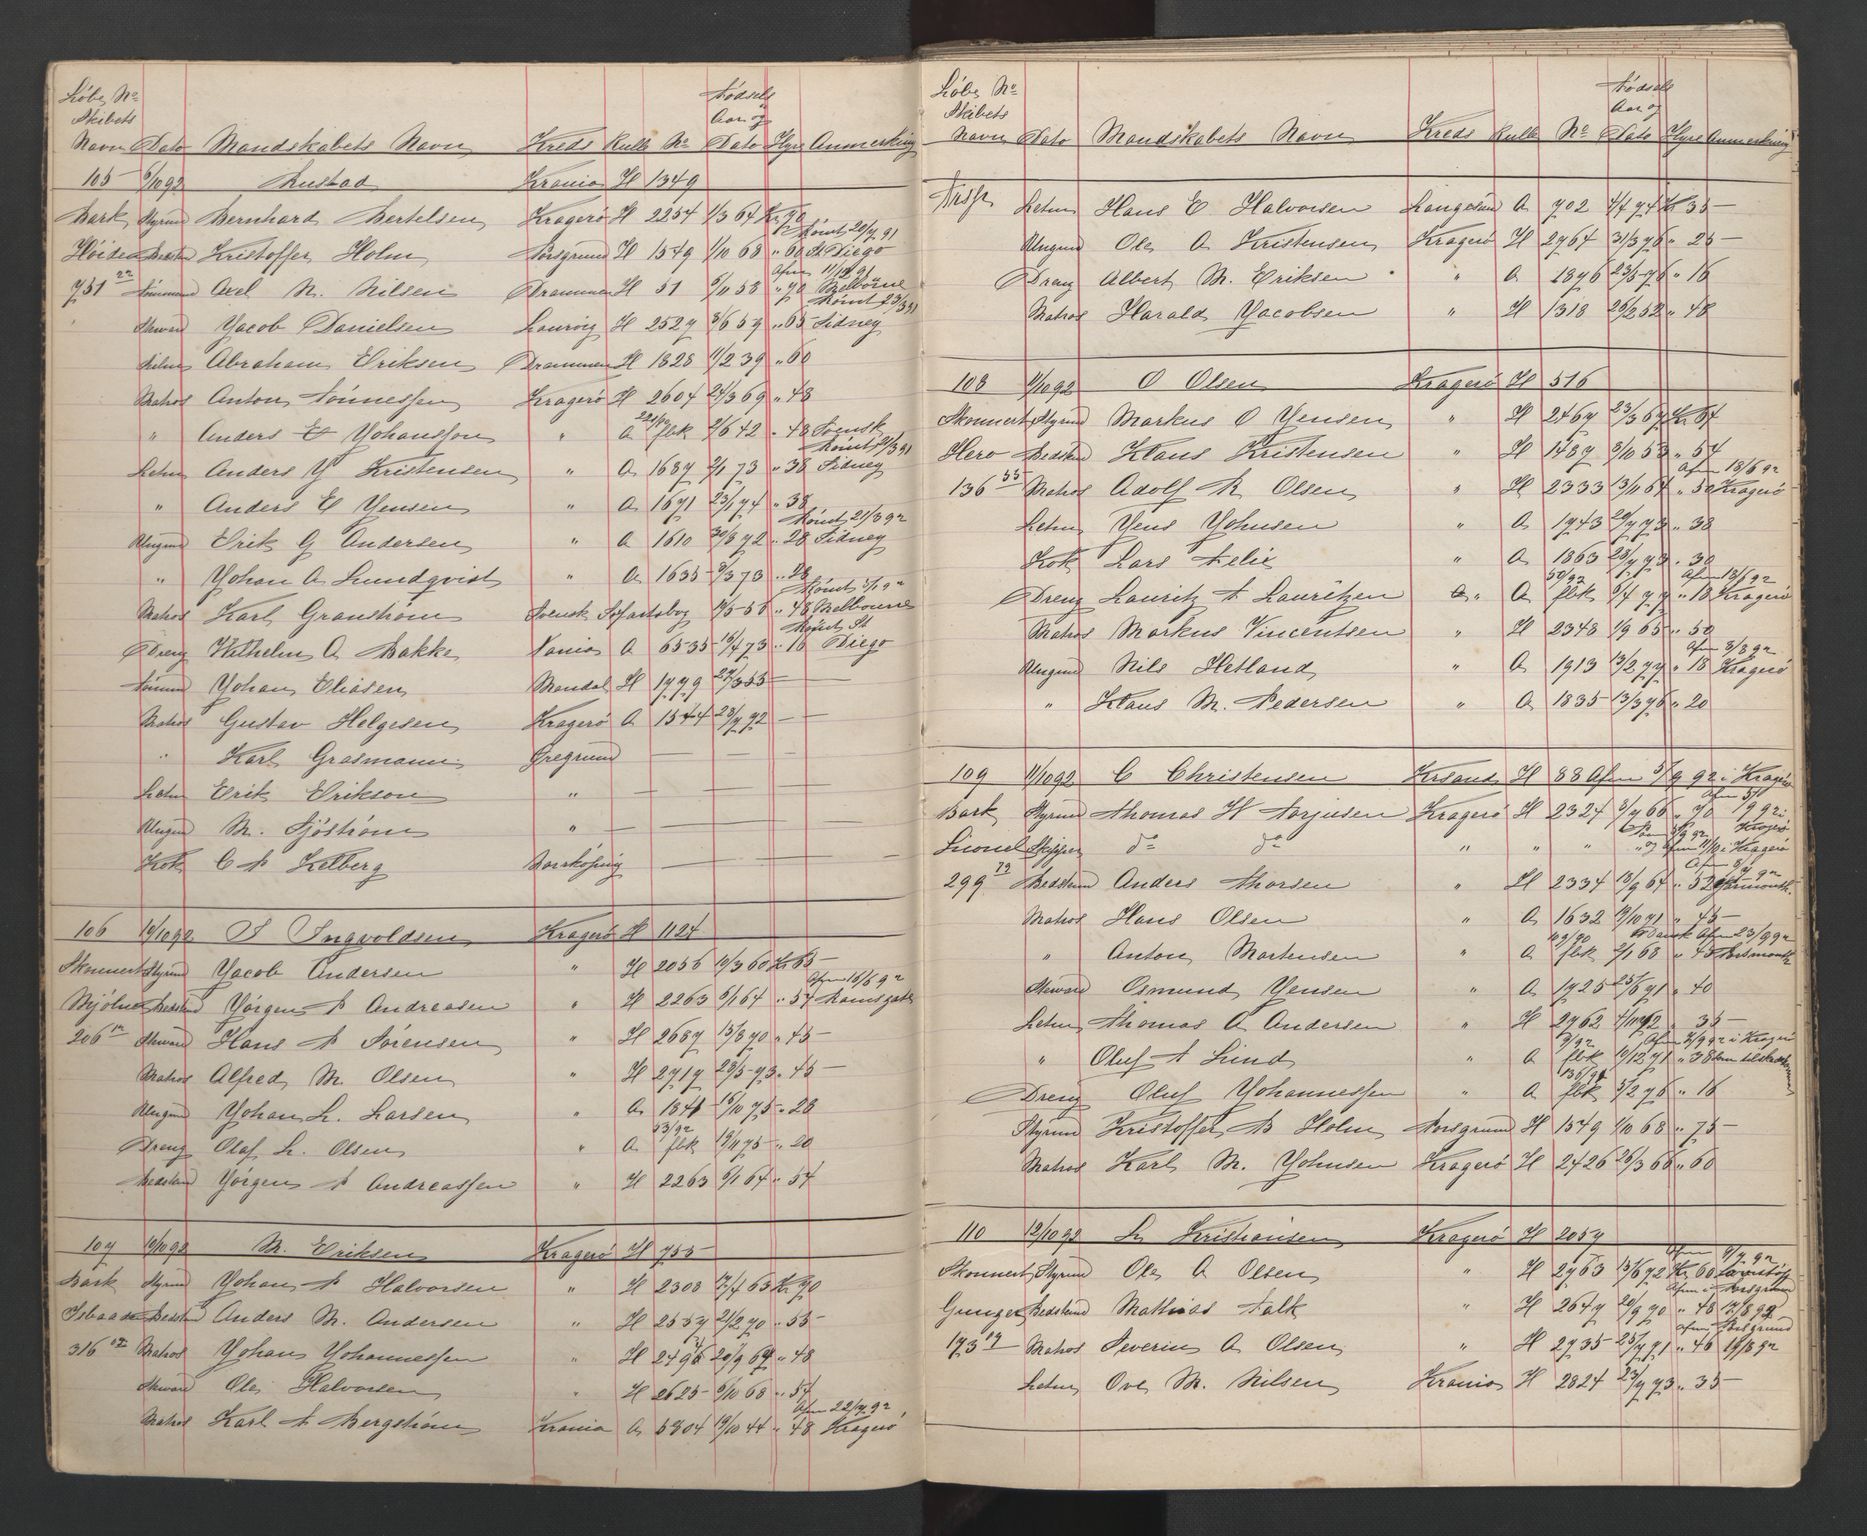 Løbe No
Skibets
Navn Dato Mandskabets Navn Kreds Rulle No Fødsels Aar og Dato Hyre Anmerkning
105 6/10 92 Krania H 1349
Bark Styrmd Bernhard Bertelsen Kragerø H 2254 1/3 64 Kr 90
Kristoffer Holm Porsgrund H 1549 1/10 68 " 60 Rømt 20/7 91 St Diego
751 22 Tømmermd Axel N. Nilsen Drammen H 51 5/11 53 " 70 Afm 11/12 91 Melborne
Steward Yacob Danielsen Laurvig H 2527 3/6 59 " 65 Rømt 23/3 91 Sidney
Seilm Abraham Eriksen Drammen H 1828 11/2 39 " 60
Matros Anton Tønnessen Kragerø H 2604 24/3 69 " 48
" Anders E Yohansson " A flk 2/6 42 " 48 Svensk
Letm Anders Y Kristensen " A 1687 2/1 73 " 38 Rømt 21/3 91 Sidney
" Anders E Yensen " A 1671 23/1 74 " 38
Ungmd Erik G Andersen " A 1610 30/8 72 " 28 Rømt 21/3 92 Sidney
" Yohan A Lundqvist " A 1635 9/3 73 " 28
Matros Karl Granstrøm Svensk Søfartsbog 19/5 58 " 48 Rømt Melbourne
Dreng Vilhelm A Bakke Xania A 6535 16/4 73 " 16 Rømt St Diego
Tømmd Yohan Eliasen Mandal H 1779 27/3 55 —
Matros Gustav Helgesen Kragerø A 1544 23/7 72 — —
" Karl Grasmann Øregrund — — — —
Letm Erik Erikson " — — — —
Ungmd M. Sjöström " — — — —
Kok C A Kelberg Norrköping — — — —
106 10/10 92 I Ingvoldsen Kragerø H 1124
Skonnert Styrmd Yacob Andersen " H 2056 19/3 60 Kr 65
Mjølner Bedstmd Yørgen A Andreasen " H 2263 6/1 64 " 54 Afm 16/6 92 Ramsgate
206 12 Steward Hans A Sørensen " H 2687 15/8 70 " 45
Matros Alfred M Olsen " H 2717 23/5 73 " 45
Ungmd Yohan L. Larsen " A 1841 15/10 75 " 28
Dreng Olaf L. Olsen " A 53/92 flk 19/1 75 " 20
Bedstmd Yørgen A Andreassen " H 2263 6/1 64 " 54
107 10/10 92 M. Eriksen Kragerø H 755
Bark Styrmd Yohan A Halvorsen " H 2308 17/4 63 Kr 70
Bedstmd Anders M. Andersen " H 2557 21/2 70 " 55
316 02 Matros Yohan Yohannessen " H 2496 20/9 67 " 48
Steward Ole Halvorsen " H 2625 6/10 68 " 54
Matros Karl A Bergstrøm Krania A 5804 19/10 44 " 48 Afm 22/7 92 Kragerø
Løbe No
Skibets
Navn Dato Mandskabets Navn Kreds Rulle No Fødsels Aar og Dato Hyre Anmerkning
Letm Hans E Halvorsen Langesund A 702 4/4 74 Kr 35
Ungmd Ole A Kristensen Kragerø H 2764 31/3 76 " 25
Dreng Albert M. Eriksen " A 1876 23/5 76 " 16
Matros Harald Yacobsen " H 1318 26/2 52 " 48
108 9/10 92 O Olsen Kragerø H 516
Skonnert Styrmd Markus O Yensen " H 2467 23/3 67 Kr 64
Hero Bedstmd Klaus Kristensen " H 1487 9/10 53 " 54
136 55 Matros Adolf R Olsen " H 2333 13/11 64 " 50 Afm 18/6 92 Kragerø
Letm Yens Yohnsen " A 1743 20/7 73 " 38
Kok Lars Aelie " A 1863 28/7 73 " 30
Dreng Lauritz A Lauritzen " A 50/92 flk 5/4 77 " 18 Afm 18/6 92 Kragerø
Matros Markus Vincentsen " H 2348 1/9 65 " 50
Ungmd Nils Hetland " A 1913 13/2 77 " 18 Afm 3/8 92 Kragerø
" Klaus M. Pedersen " A 1835 13/3 76 " 20
109 11/10 92 C Christensen Krsand H 88 Afm 5/9 92 i Kragerø
Bark Styrmd Thomas H Torjusen Kragerø H 2324 3/7 66 " 70 Afm 5/9 92 i Kragerø
Lionel Skipper do do " " " " og Afm 11/10 i Kragerø
299 79 Bedstmd Anders Thorsen " H 2334 13/9 64 " 52
Matros Hans Olsen " A 1632 19/10 71 " 45
" Anton Mortensen " A flk 2/1 68 " 45 Dansk Afm 23/9 92
Steward Osmund Yensen " A 1725 25/6 71 " 40
Letm Thomas A Andersen " H 2762 " 35
" Oluf A Lund " A 9/92 flk 19/12 71 " 38 Afm 7/9 92 i Kragerø
Dreng Oluf Yohannessen " A flk 5/2 76 " 16
Styrmd Kristoffer B Holm Porsgrund H 1549 1/10 68 " 75
Matros Karl M. Yohnsen Kragerø H 2426 26/3 66 " 60
110 12/10 92 L Kristiansen Kragerø H 2057
Skonnert Styrmd Ole A Olsen " H 2763 13/6 72 Kr 60
Gunger Bedstmd Mathias Falk " H 2647 20/9 70 " 48 Afm i Porsgrund 12/8 92
173 09 Matros Severin A Olsen " H 2735 25/7 71 " 46 Afm Porsgrund 19/8 92
Letm Ove M. Nilsen Krania H 2824 23/7 73 " 35